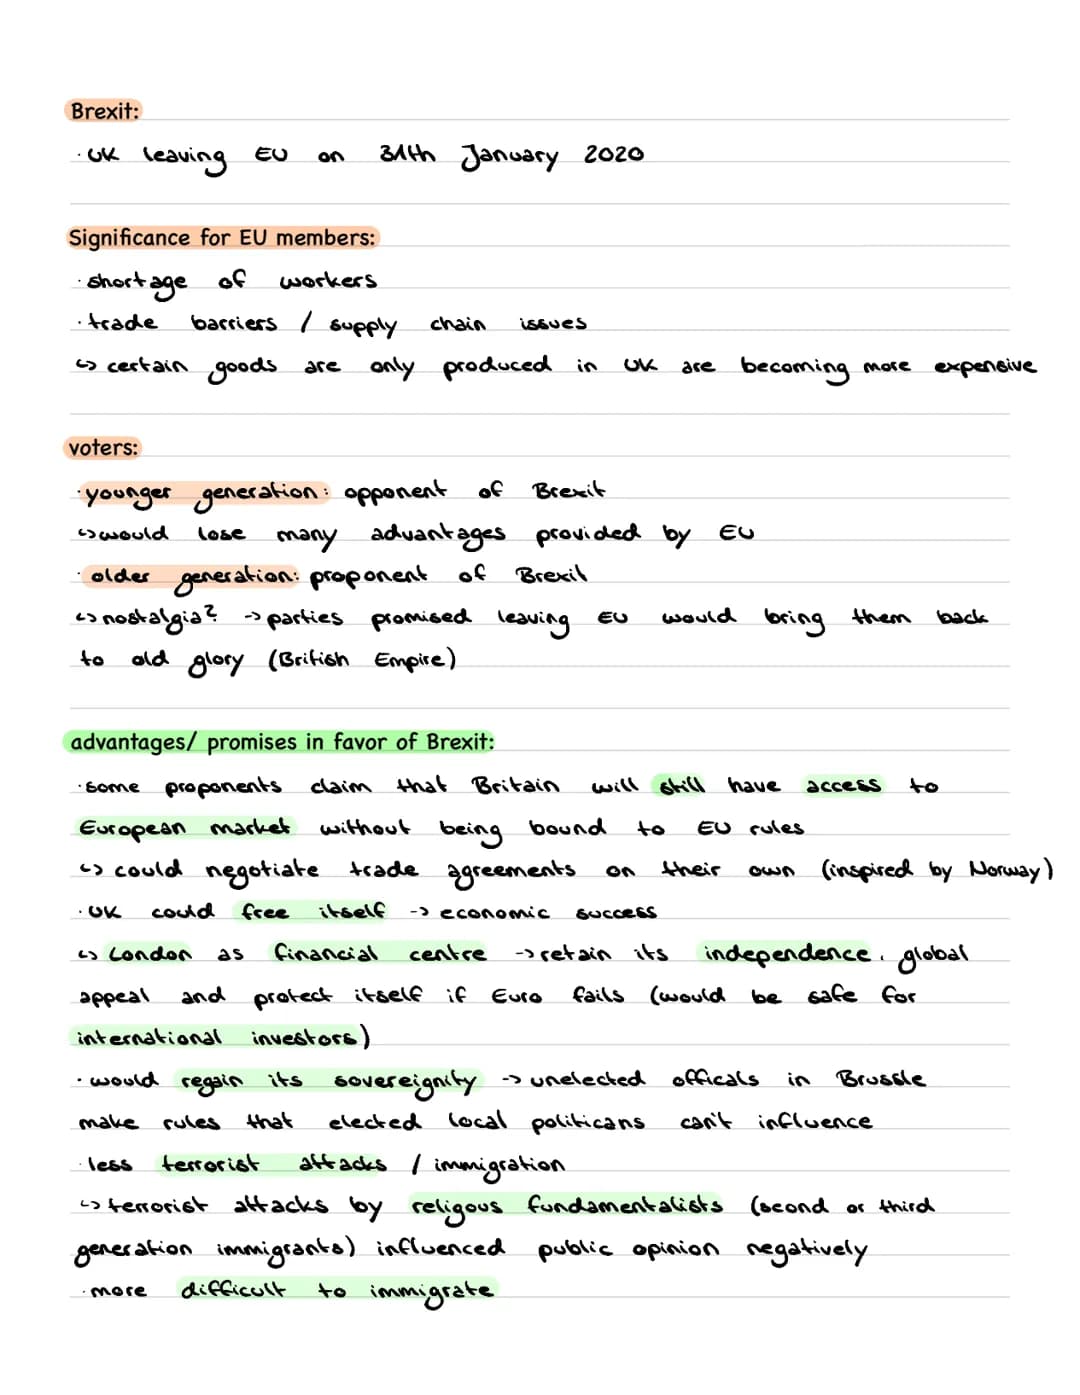 Brexit:
· UK leaving EU on 31th January 2020
Significance for EU members:
· shortage of workers
· trade barriers / supply chain issues
↳ certain goods are only produced in UK are becoming more expensive
voters:
· younger generation: opponent of Brexit
↳ would lose many advantages provided by EU
· older generation: proponent of Brexit
↳ nostalgia? -> parties promised leaving EU would bring them back
to old glory (British Empire)
advantages/ promises in favor of Brexit:
· some proponents claim that Britain will still have access to
European market without being bound to EU rules
↳ could negotiate trade agreements on their own (inspired by Norway)
· UK could free itself -> economic success
↳ London as financial centre -> retain its independence, global
appeal and protect itself if Euro fails (would be safe for
international investors)
· would regain its sovereignity -> unelected officals in Brussle
make rules that elected local politicans can't influence
· less terrorist attacks / immigration
↳ terrorist attacks by religous fundamentalists (second or third
generation immigrants) influenced public opinion negatively
· more difficult to immigrate